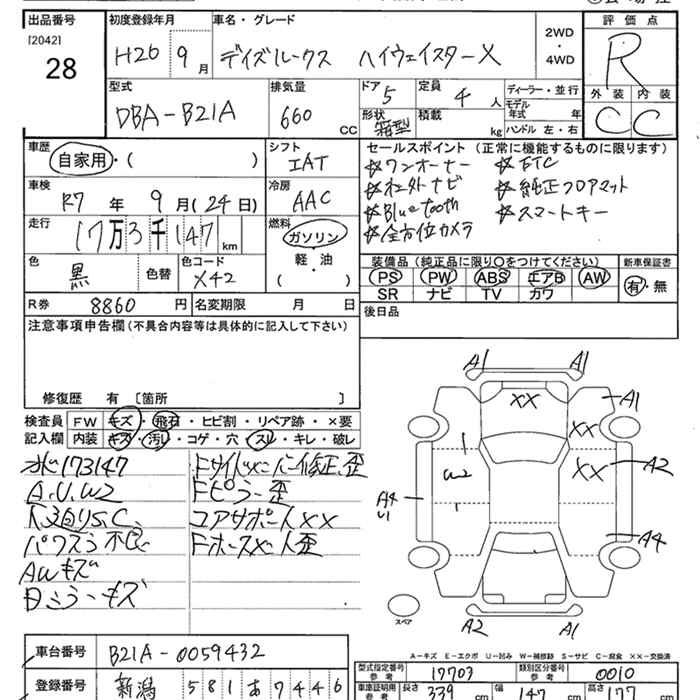 出品番号 初度登録年月 車名・グレード 評価点
[2042] 28
H26 9月 デイズルークス ハイウェイスターX 2WD・4WD R
型式 排気量 ドア 定員 ディーラー・並行 外装 内装
DBA-B21A 660 CC 5 4人 モデル年式 年 C C
形状 箱型 積載 kg ハンドル 左・右
車歴 自家用・( ) シフト IAT セールスポイント (正常に機能するものに限ります)
☆ワンオーナー ☆ETC
車検 R7年 9月(24日) 冷房 AAC
☆社外ナビ ☆純正フロアマット
☆Bluetooth ☆スマートキー
☆全方位カメラ
走行 17万3千147km 燃料 ガソリン 軽・油 ( )
色 黒 色替 色コード X42
装備品(純正品に限り○をつけてください) 新車保証書
PS PW ABS エアB AW 有・無
SR ナビ TV カワ
R券 8860円 名変期限 月 日
後日品
注意事項申告欄(不具合内容等は具体的に記入して下さい)
修復歴 有 〔箇所 〕
検査員記入欄 FW キズ・飛石・ヒビ割・リペア跡・×要
内装 キズ・汚レ・コゲ・穴・スレ・キレ・破レ
A.U.W2
パワスラ不良
AWキズ
Dミラーキズ
Fピラー歪
コアサポートXX
A1 A1
XX A1
XX
W2 XX A2
A4 U1
A4
A2 A1
スペア
A-キズ E-エクボ U-凹み W-補修跡 S-サビ C-腐食 XX-交換済
車台番号 B21A-0059432
型式指定番号 参考 17703 類別区分番号 参考 0010
登録番号 新潟 581 あ 7446
車庫証明用 参考 長さ 339 cm 幅 147 cm 高さ 177 cm